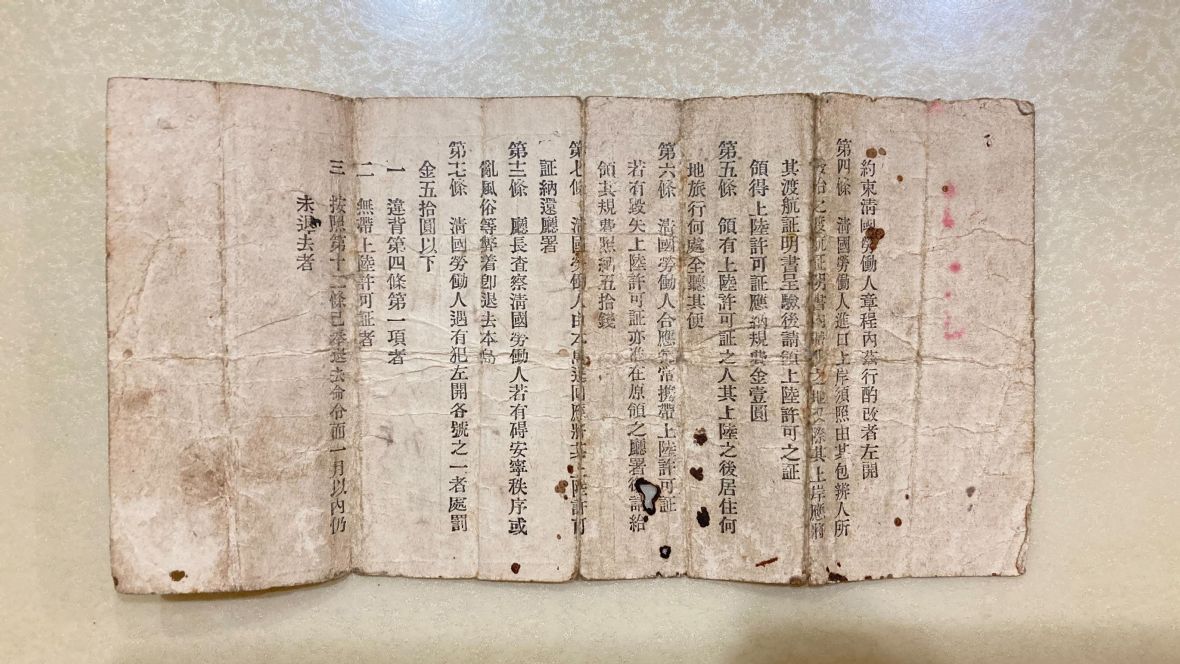 約束清國勞働人章程內茲行酌改者左開
第四條　清國勞働人進口上岸須照由其包辨人所
之渡航証明書之地其上岸應將
其渡航証明書呈驗後請領上陸許可之証
領得上陸許可証應納規費金壹圓
第五條　領有上陸許可証之人其上陸之後居住何
地旅行何處全聽其便
第六條　清國勞働人合應常攜帶上陸許可証
若有毀失上陸許可証亦准在原領之廳署請給
領其規費照納五拾錢
第七條　清國勞働人由本島退回應將其上陸許可
証納還廳署
第十二條　廳長查察淸國勞働人若有碍安寧秩序或
亂風俗等弊着卽退去本島
第十七條　淸國勞働人遇有犯左開各號之一者處罰
金五拾圓以下
一　違背第四條第一項者
二　無帶上陸許可証者
三　按照第十二條已奉退去命令而一月以內仍
未退去者